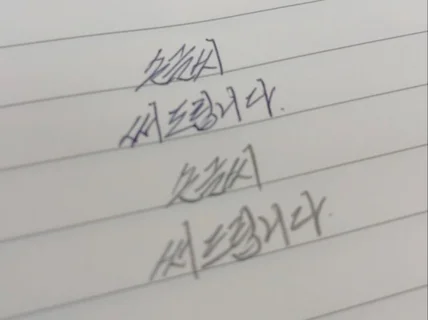 손글씨
써드립니다.
손글씨
써드립니다.